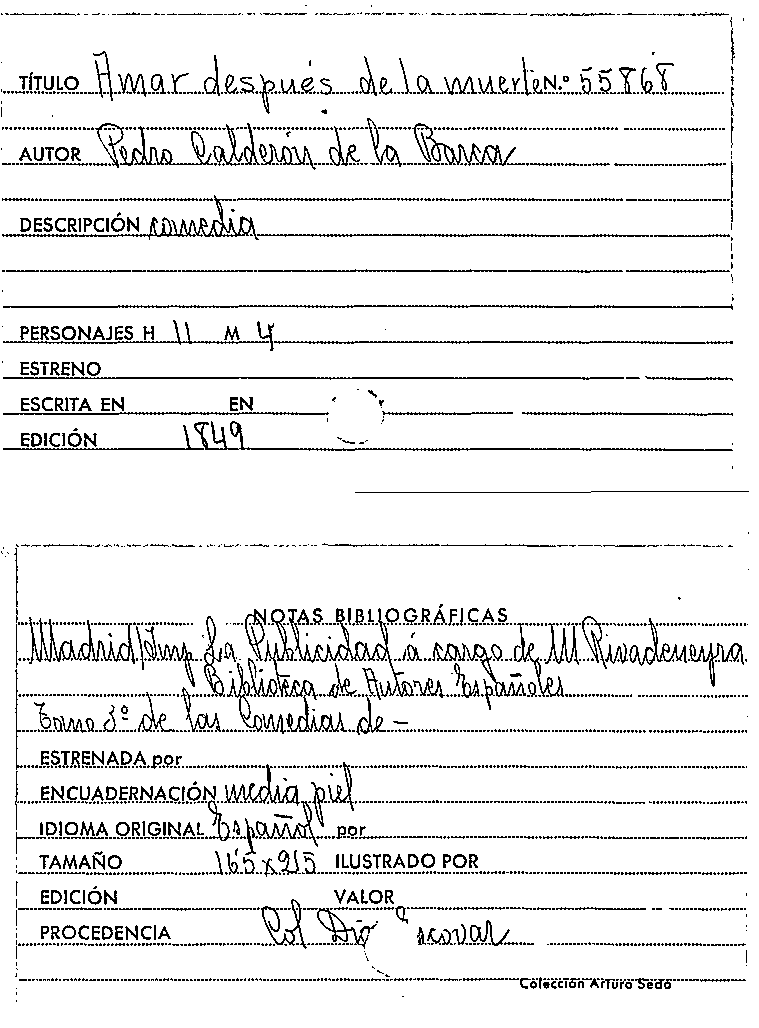 TÍTULO Amar después de la muerte N.º 55868
AUTOR Pedro Calderón de la Barca
DESCRIPCIÓN comedia
PERSONAJES H 11 M 4
ESTRENO
ESCRITA EN EN
EDICIÓN 1849
NOTAS BIBLIOGRÁFICAS
Madrid/Imp La Publicidad á cargo de M Rivadeneyra
Biblioteca de Autores Españoles
Tomo 3º de las Comedias de -
ESTRENADA por
ENCUADERNACIÓN media piel
IDIOMA ORIGINAL Español por
TAMAÑO 165 x 215 ILUSTRADO POR
EDICIÓN VALOR
PROCEDENCIA Col
Colección Arturo Sedó